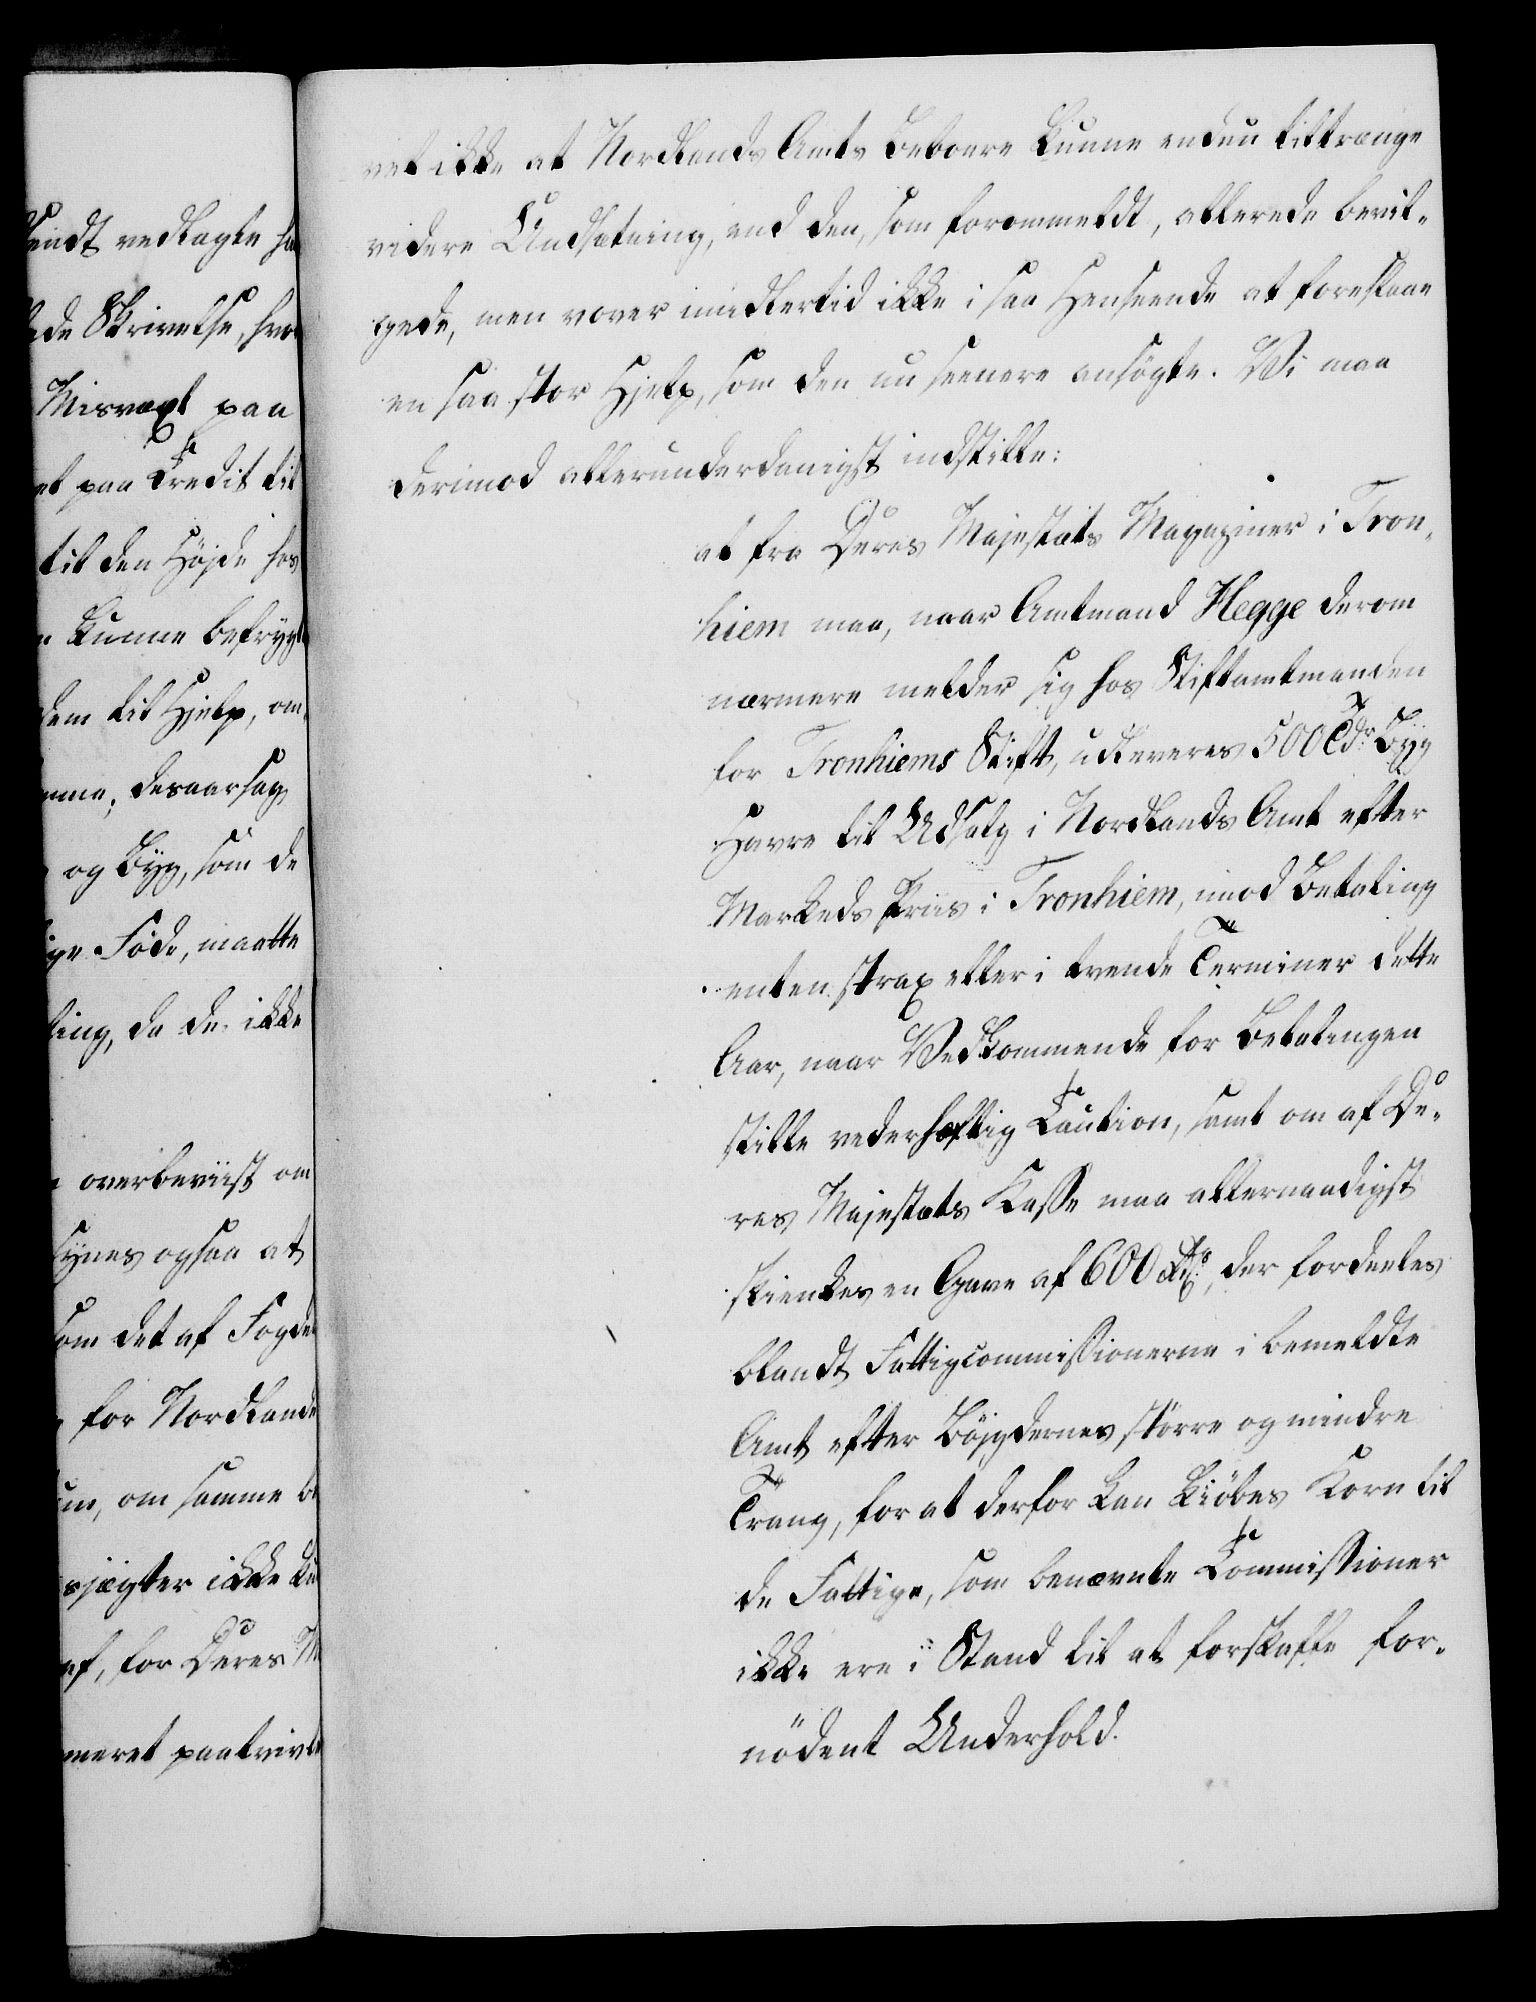 sendt vedlagte
ede Skrivelse,
Misvæxt paa
et paa Credit til
til den Höjde hos
kunne befrygt
dem til Hjelp, om
desaarsag
og Byg, som de
ige Föde, maatte
ling, da de ikke
overbeviist om
synes ogsaa at
som det af Fogde
for Nordlands
om samme
ikke
af, for Deres M
meret paatvivle
vel ikke at Nordlands Amts Beboere kunne endnu tiltrænge
videre Undsætning, end den, som forommeldt, allerede bevil-
gede, men vover imidlertid ikke i saa Henseende at foreslaae
en saa stor Hjelp, som den nu seenere ansögte. Vi maa
derimod allerunderdanigst indstille:
at fra Deres Majestæts Magaziner i Tron-
hiem maa, naar Amtmand Hegge derom
nærmere melder sig hos Stiftamtmanden
for Tronhiems Stift, udleveres 500 Tdr. Byg
Havre til Udsalg i Nordlands Amt efter
Markeds Priis i Tronhiem, imod Betaling
enten strax eller i tvende Terminer dette
Aar, naar Vedkommende for Betalingen
stille vederhæftig Caution, samt om af De-
res Majestæts Kasse maa allernaadigst
skienkes en Gave af 600 Rd., der fordeeles
blandt Fattigcommissionerne i bemeldte
Amt efter Böjgdernes större og mindre
Trang, for at derfor kan kiöbes Korn til
de Fattige, som benævnte Commissioner
ikke ere i Stand til at forskaffe for-
nödent Underhold.